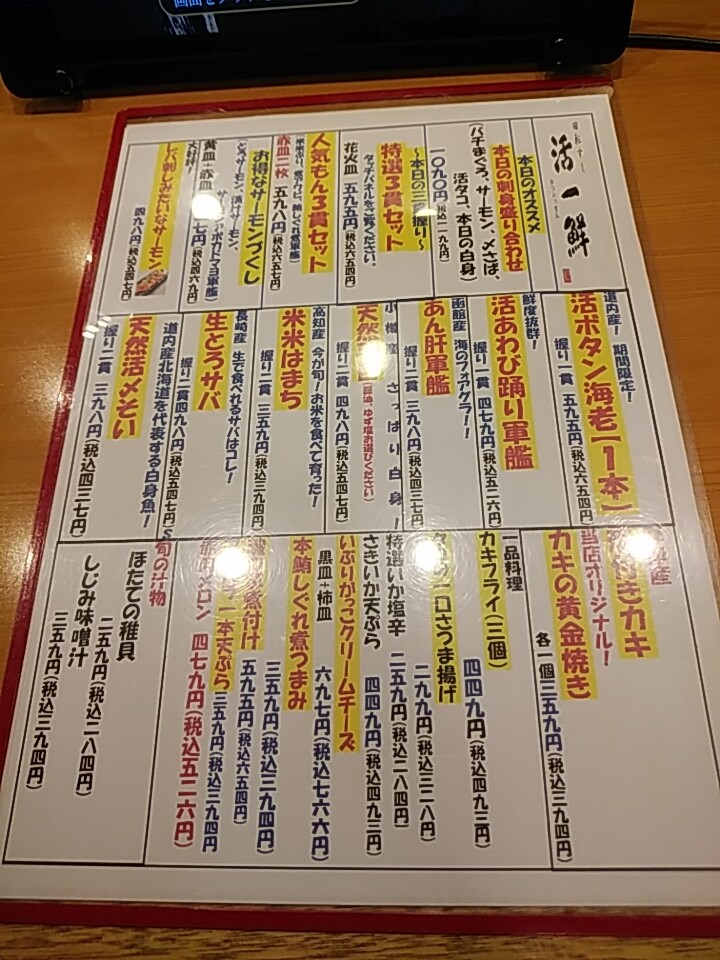 活一鮮
本日のオススメ
本日の刺身盛り合わせ
(バチまぐろ、サーモン、〆さば、
活タコ、本日の白身)
一〇九〇円(税込一一九九円)
〜本日の三貫握り〜
特選3貫セット
タッチパネルをご覧ください。
花火皿 五九五円(税込六五四円)
人気もん3貫セット
赤皿二枚 五九八円(税込六五七円)
お得なサーモンづくし
黄皿+赤皿
大好評!
レバ刺しみたいなサーモン
四九八円(税込五四七円)
道内産! 期間限定!
活ボタン海老【1本】
握り一貫 五九五円(税込六五四円)
鮮度抜群!
活あわび踊り軍艦
握り一貫 四七九円(税込五二六円)
函館産 海のフォアグラ!!
あん肝軍艦
握り二貫 三九八円(税込四三七円)
小樽産 さっぱり白身!
天然
握り二貫 四九八円(税込五四七円)
高知産 今が旬!お米を食べて育った!
米米はまち
握り二貫 三五九円(税込三九四円)
長崎産 生で食べれるサバはコレ!
生とろサバ
握り二貫四九八円(税込五四七円)
道内産北海道を代表する白身魚!
天然活〆そい
握り二貫 三九八円(税込四三七円)
産
付きカキ
当店オリジナル!
カキの黄金焼き
各一個三五九円(税込三九四円)
一品料理
カキフライ(三個) 四四九円(税込四九三円)
コロさつま揚げ 二九九円(税込三二八円)
特選いか塩辛 二五九円(税込二八四円)
さきいか天ぷら 四四九円(税込四九三円)
いぶりがっこクリームチーズ
黒皿+柿皿 六九七円(税込七六六円)
本鮪しぐれ煮つまみ 三五九円(税込三九四円)
煮付け 五九五円(税込六五四円)
一本天ぷら 三五九円(税込三九四円
メロン 四七九円(税込五二六円)
旬の汁物
ほたての稚貝
二五九円(税込二八四円)
しじみ味噌汁
三五九円(税込三九四円)